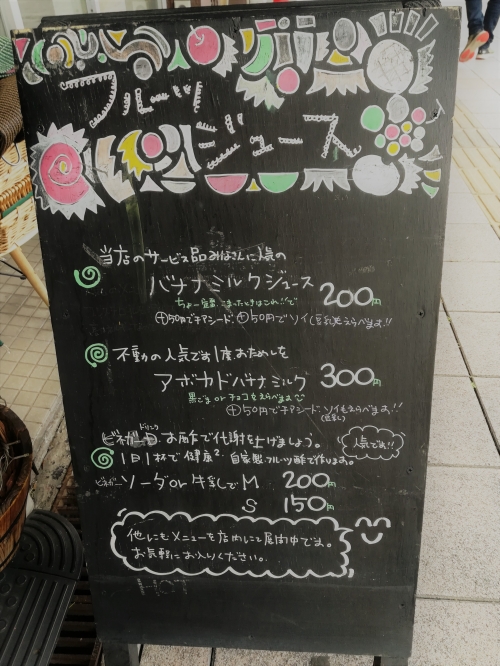 フルーツ
ジュース
当店のサービス品みなさんに人気の
バナナミルクジュース 200円
ちょー定番 こまったときはこれ!!で
⊕50円でチアシード・⊕50円でソイ(豆乳)もえらべます!!
不動の人気です1度おためしを
アボカドバナナミルク 300円
黒ごま or チョコをえらべます
⊕50円でチアシード・ソイもえらべます!!
(豆乳)
ドリンク
ビネガー お酢で代謝を上げましょう。
人気です!!
1日1杯で健康2 自家製フルーツ酢で作ります。
ビネガー ソーダor牛乳でM 200円
S 150円
他にもメニューを店内にて展開中です。
お気軽にお入りください。
HOT